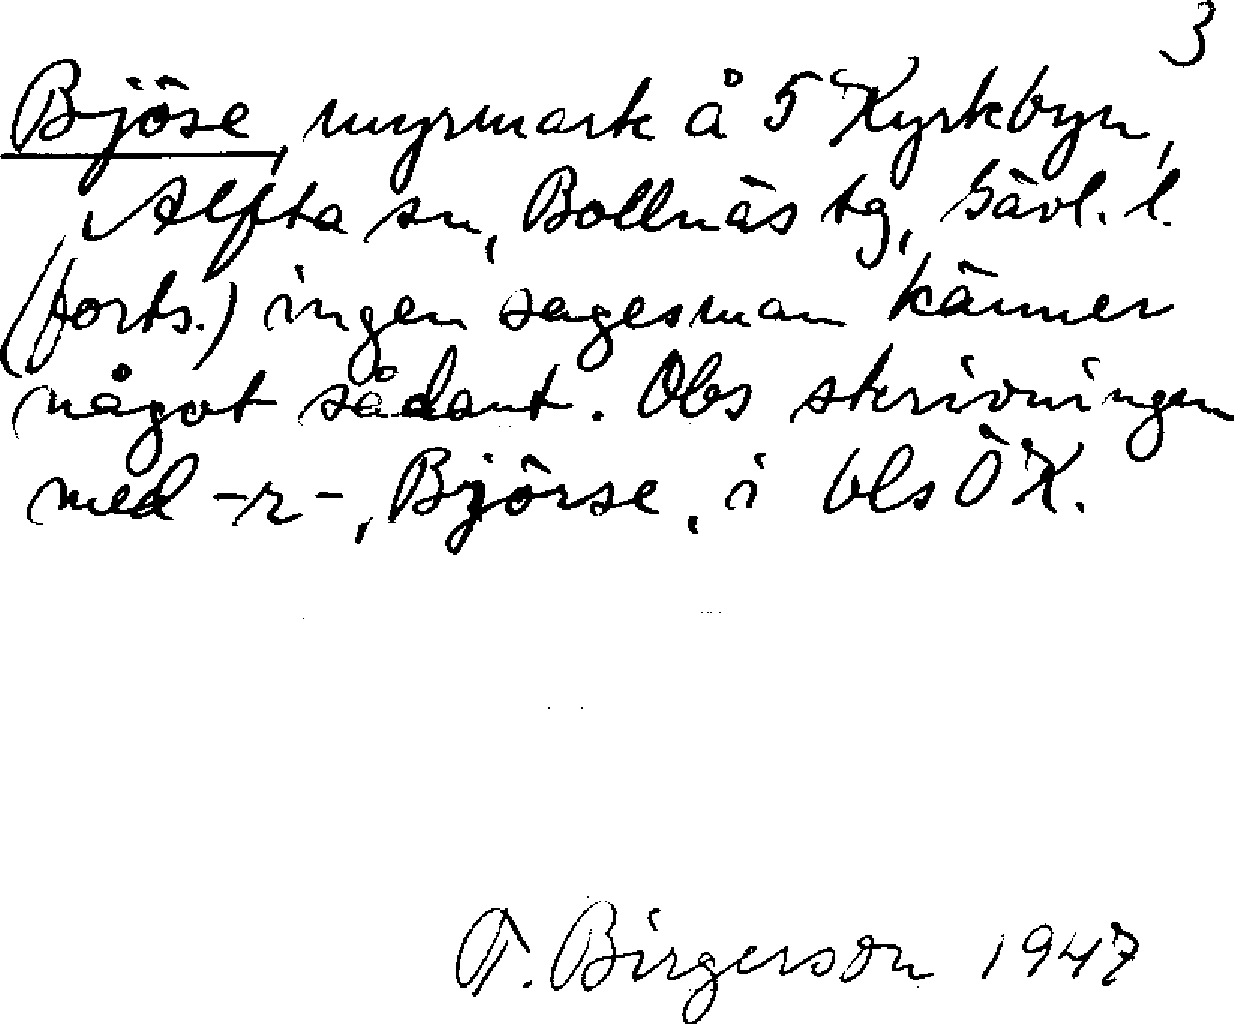 3
Bjöse, myrmark å 5 Kyrkbyn,
Alfta sn, Bollnäs tg, Gävl. l.
(forts.) ingen sagesman känner
något sådant. Obs skrivningen
med -r-, Björse, i bls ÖK.
T. Birgerson 1947